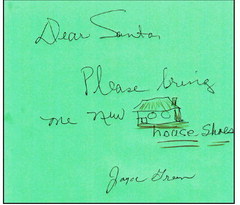 Dear Santa,
Please bring
me new
house shoes
Joyce Green